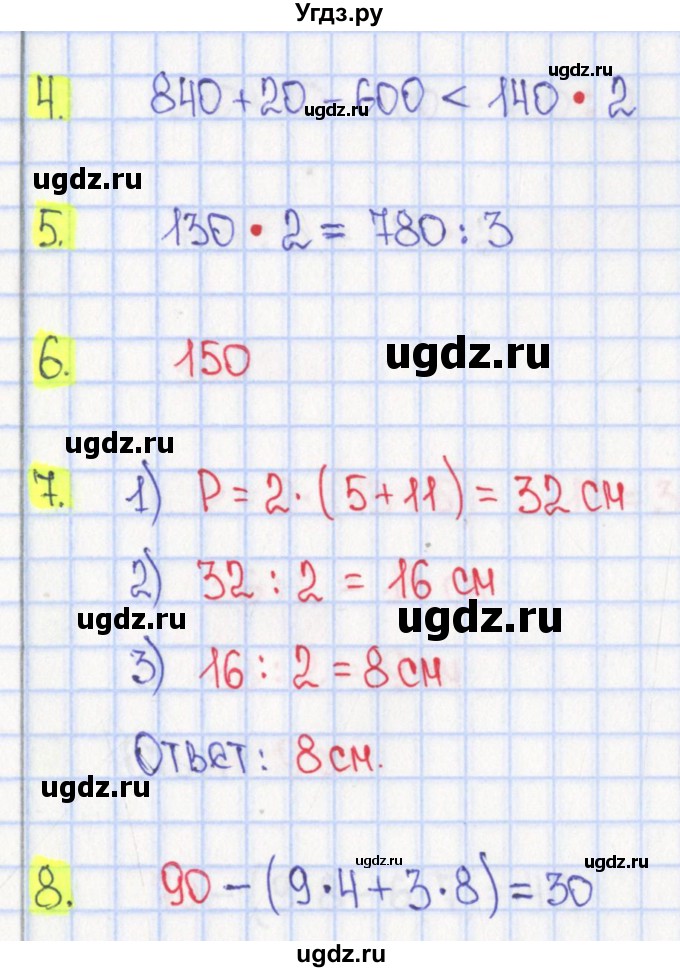 Угдз.ру
ugdz.ru
4. 840 + 20 - 600 < 140 • 2
ugdz.ru
ugdz.ru
5. 130 • 2 = 780 : 3
6. 150
ugdz.ru
ugdz.ru
7. 1) P = 2 · (5 + 11) = 32 см
2) 32 : 2 = 16 см
ugdz.ru
ugdz.ru
3) 16 : 2 = 8 см
Ответ: 8 см.
ugdz.ru
ugdz.ru
ugdz.ru
8. 90 - (9 · 4 + 3 · 8) = 30
ugdz.ru